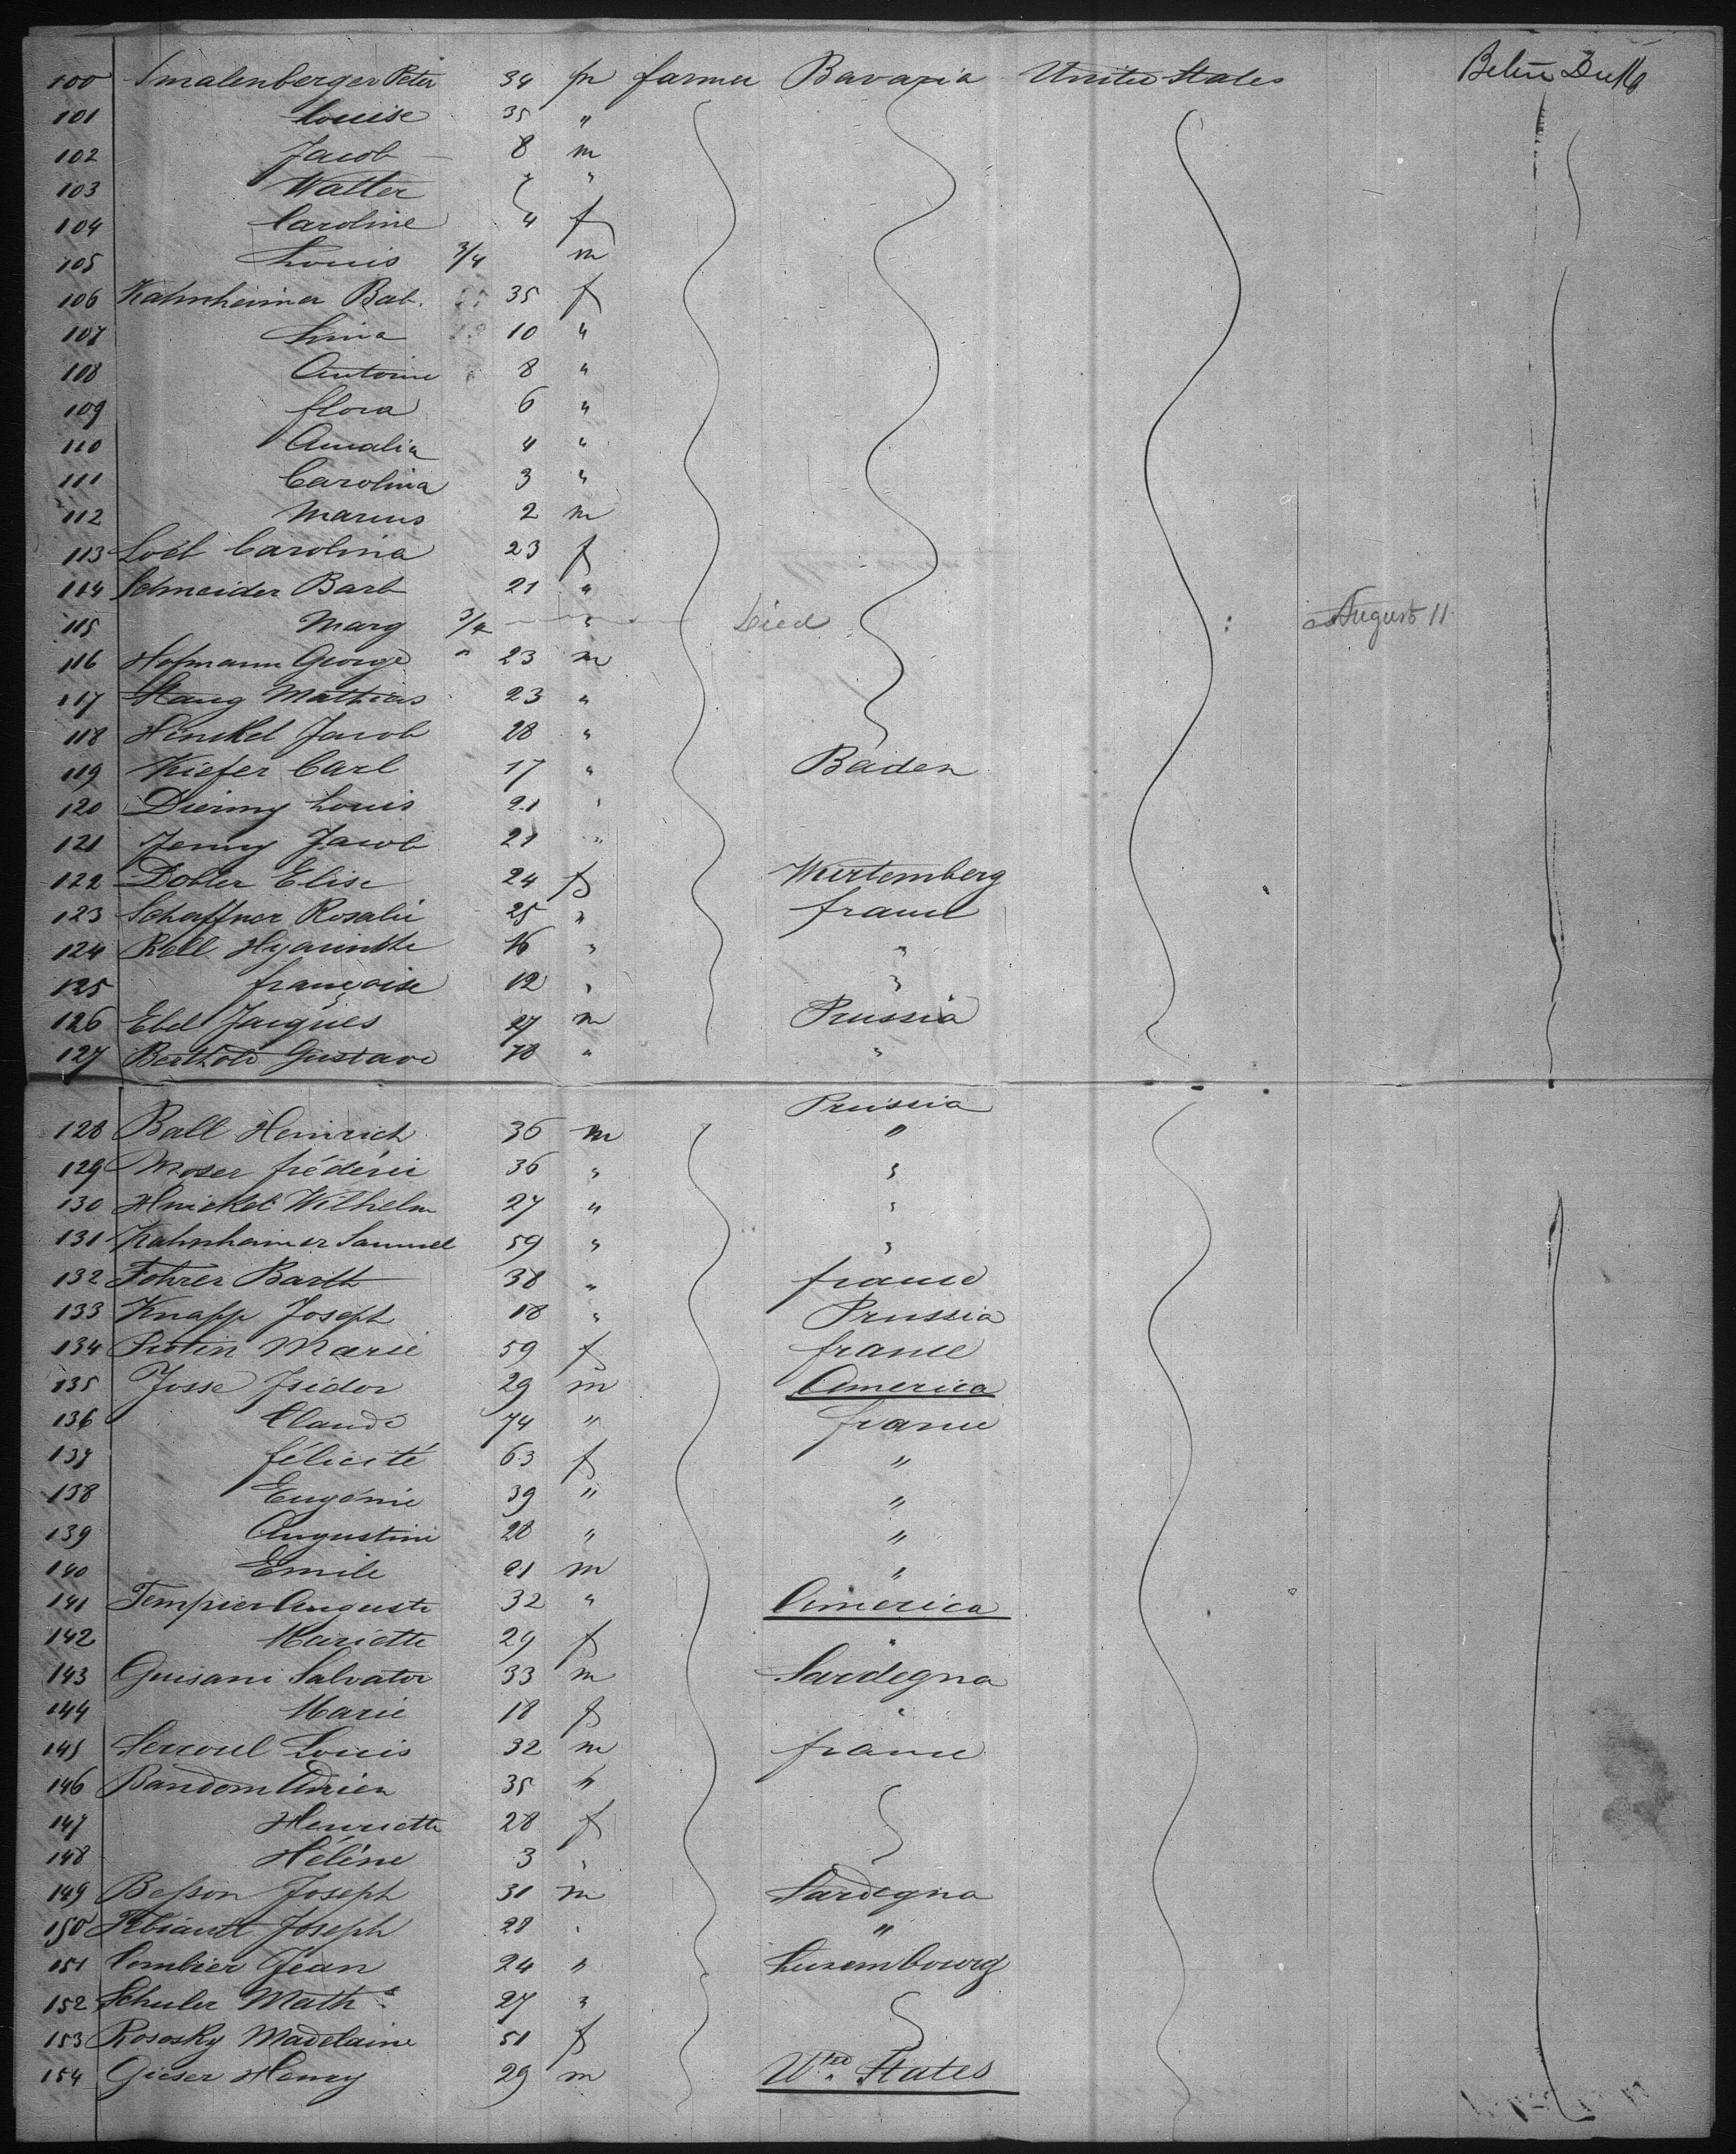 100 Smalenberger Peter 34 m farmer Bavaria United States
101 Louise 35 "
102 Jacob 8 m
103 Walter "
104 Caroline 4 f
105 Louis 3/4 m
106 Kahnheimer Bab. 35 f
107 Lina 10 "
108 Antoine 8 "
109 flora 6 "
110 Amalia 4 "
111 Carolina 3 "
112 Marcus 2 m
113 Loeb Carolina 23 f
114 Schneider Barb 21 "
115 Marg 3/4 " Died August 11
116 Hofmann George 23 m
117 Stang Mathias 23 "
118 Hinckel Jacob 28 "
119 Kiefer Carl 17 " Baden
120 Louis 21 "
121 Jenny Jacob 21 "
122 Dobler Elise 24 f Wurtemberg
123 Schaffner Rosalie 25 " france
124 Rell Hyacinthe 16 " "
125 françoise 12 " "
126 Ebel Jacques 27 m Prussia
127 Berthold Gustave 18 " "
Prussia
128 Ball Heinrich 36 m "
129 Moser frédéric 36 " "
130 Wilhelm 27 " "
131 Kahnheimer Samuel 59 " "
132 Fohrer Barth 38 " france
133 Knapp Joseph 18 " Prussia
134 Marie 59 f france
135 Josse Isidor 29 m America
136 Claude 74 " france
137 félicité 63 f "
138 Eugénie 39 " "
139 Augustine 28 " "
140 Emile 21 m "
141 Tempier Auguste 32 " America
142 Mariette 29 f "
143 Guisani Salvator 33 m Sardegna
144 Marie 18 f "
145 Serroul Louis 32 m france
146 Bandom Adrien 35 "
147 Henriette 28 f
148 Hélène 3 "
149 Besson Joseph 31 m Sardegna
150 Joseph 28 " "
151 Combier Jean 24 " Luxembourg
152 Schuler Math 27 "
153 Rososky Madelaine 51 f
154 Gieser Henry 29 m Uted. States